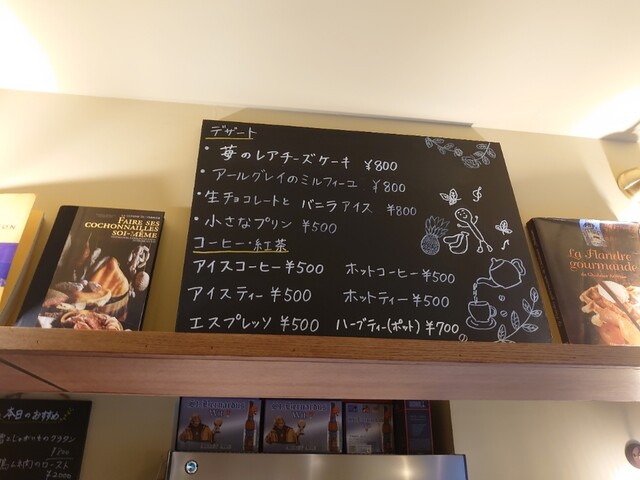 デザート
・苺のレアチーズケーキ ¥800
・アールグレイのミルフィーユ ¥800
・生チョコレートと バニラアイス ¥800
・小さなプリン ¥500
コーヒー・紅茶
アイスコーヒー ¥500 ホットコーヒー ¥500
アイスティー ¥500 ホットティー ¥500
エスプレッソ ¥500 ハーブティー(ポット) ¥700
FAIRE SES
COCHONNAILLES
SOI-MÊME
La Flandre
gourmande
St.Bernardus
Wit
St.Bernardus
Wit
本日のおすすめ
じゃがいものグラタン
のロースト
¥2000